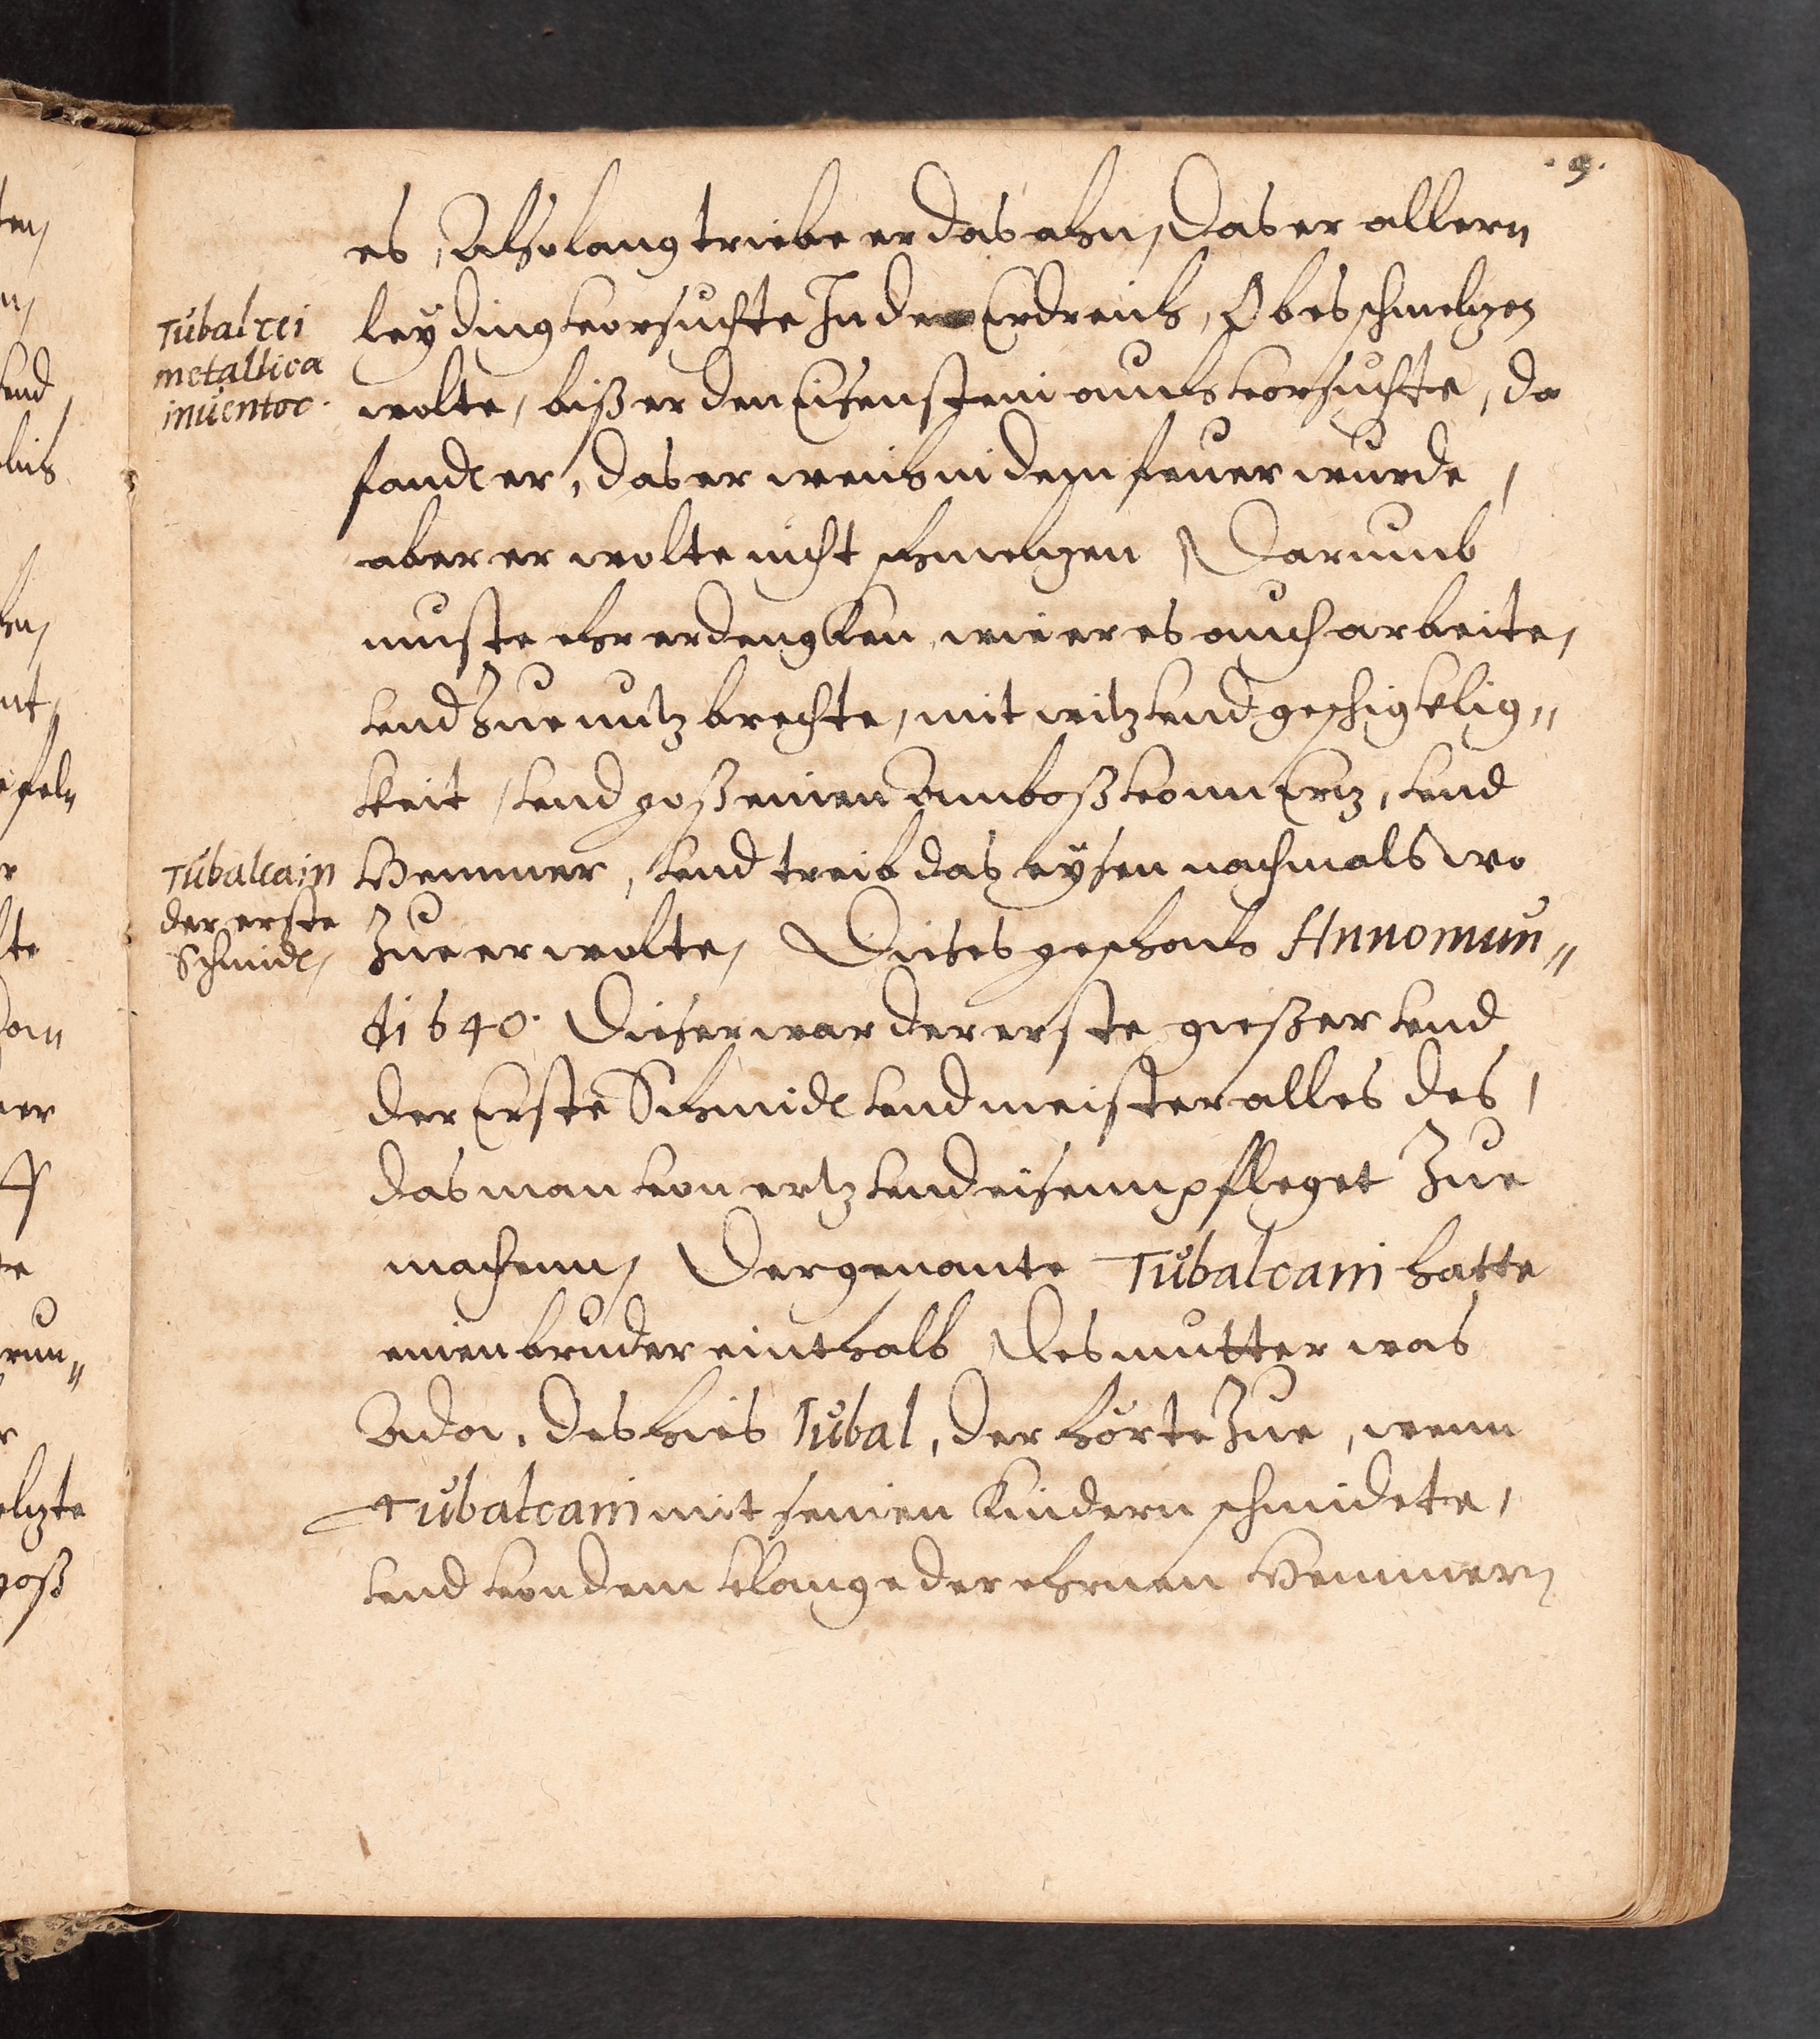 .9.
es, Also lang triebe er das ahn, Das er allern
leÿ ding versuchte In de Erdreich, Ob es schmeltzen
wolte, biß er den Eisenstein auch versuchte, da
fandt er, das er weich in dem feuer wurde,
aber er wolte nicht schmeltzen, Darumb
muste ehr erdengkken, wie er es auch arbeite,
vnd Zue nutz brechte, mit witz vnd geschigklig„
keit, vnd goß einen Amboß vonn Ertz, vnd
Hemmer, vnd treib das eÿsen nachmals wo
Zue er wolte, Dieses geschach Anno mun„
di 640. Dieser war der erste gießer vnd
der Erste Schmidt vnd meister alles des,
das man von ertz vnd eisenn pfleget Zue
machenn, Der genante Tubalcain hatte
einen bruder einthalb, des mutter was
Ada, des hies Iubal, der hörte Zue, wenn
Tubalcain mit seinen Kindern schmidete,
vnd von dem klange der ehrnen Hemmern
Tubal rei
metallica
inuentor.
Tubalcain
der erste
Schmidt,